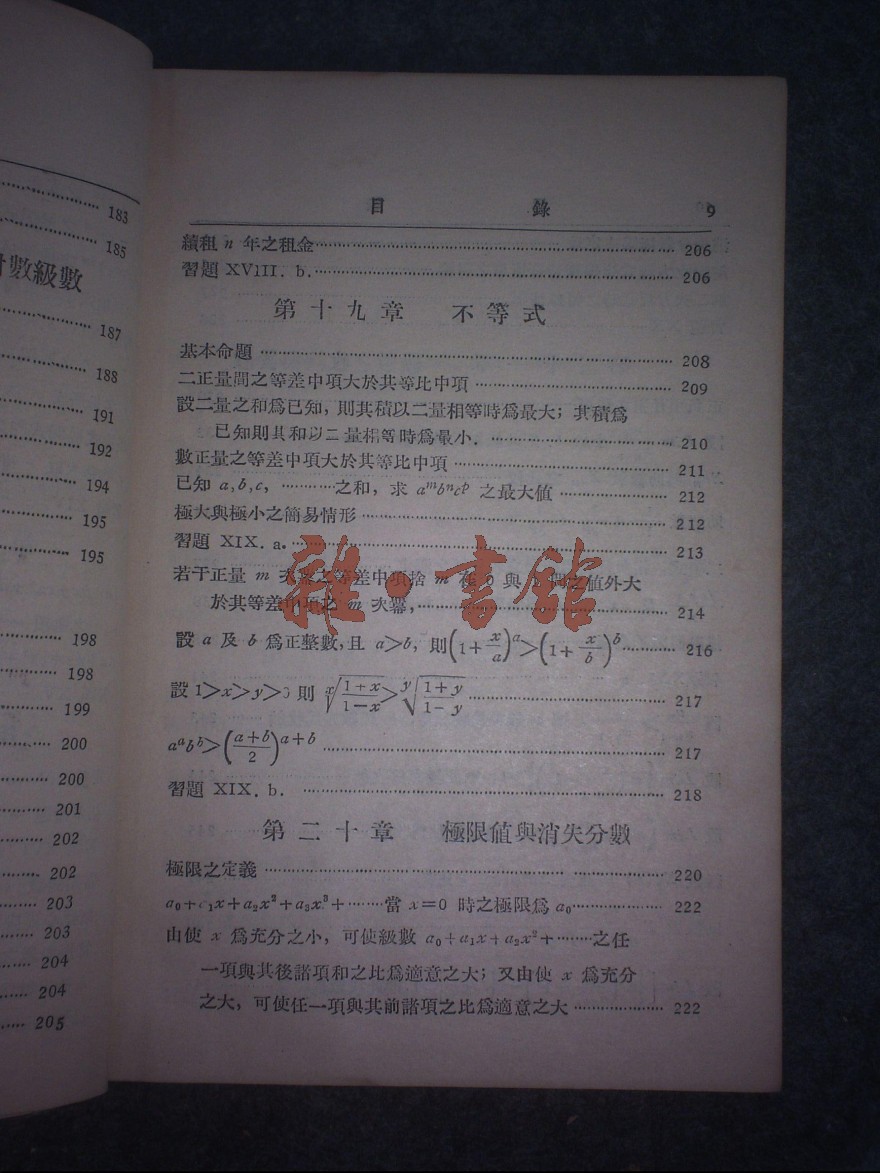 183
185
數級數
187
188
191
192
194
195
195
198
198
199
200
200
201
202
202
203
203
204
204
205
目 錄 9
續租 n 年之租金 206
習題 XVIII. b. 206
第十九章 不等式
基本命題 208
二正量間之等差中項大於其等比中項 209
設二量之和爲已知, 則其積以二量相等時爲最大; 其積爲
已知則其和以二量相等時爲最小. 210
數正量之等差中項大於其等比中項 211
已知 a,b,c, …………之和, 求 aᵐbⁿcᵖ 之最大値 212
極大與極小之簡易情形 212
習題 XIX. a. 213
若干正量 m 次冪之等差中項捨 m 在 0 與 1 間之值外大
於其等差中項之 m 次冪, 214
設 a 及 b 爲正整數, 且 a>b, 則(1+x/a)ᵃ>(1+x/b)ᵇ 216
設 1>x>y>0 則 ˣ√(1+x/1−x)>ʸ√(1+y/1−y) 217
aᵃbᵇ>(a+b/2)ᵃ⁺ᵇ 217
習題 XIX. b. 218
第二十章 極限値與消失分數
極限之定義 220
a₀+a₁x+a₂x²+a₃x³+………當 x=0 時之極限爲 a₀ 222
由使 x 爲充分之小, 可使級數 a₀+a₁x+a₂x²+………之任
一項與其後諸項和之比爲適意之大; 又由使 x 爲充分
之大, 可使任一項與其前諸項之比爲適意之大 222
雜·書館